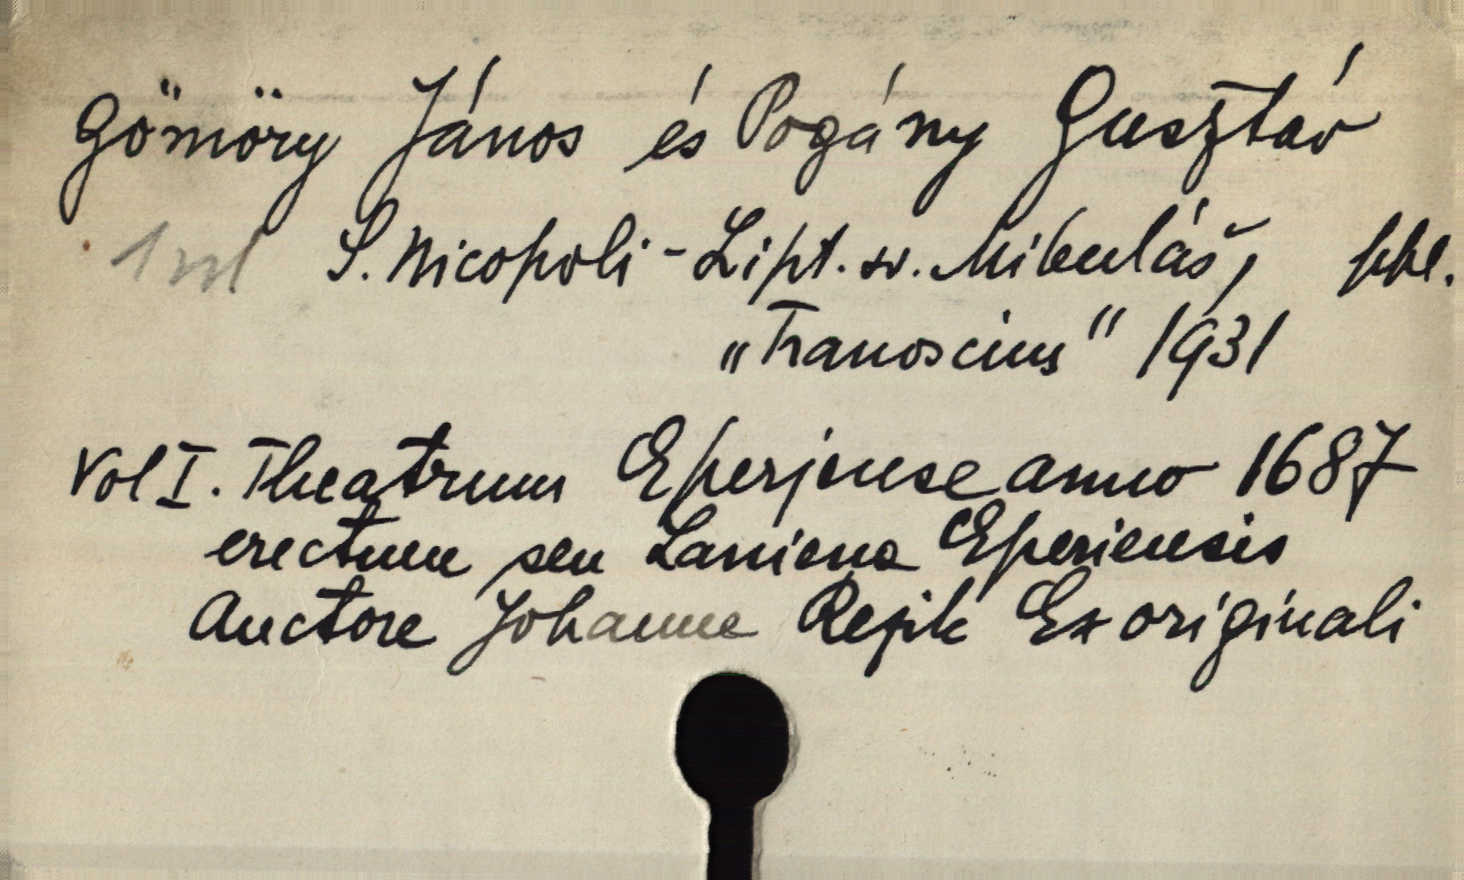 Gömöry János és Pogány Gusztáv
S. Nicopoli - Lipt. sv. Mikuláš, ppl.
„Tranoscius" 1931
Vol I. Theatrum Eperjense anno 1687
erectum seu Laniena Eperiensis
Auctore Johanne Rezik Ex originali